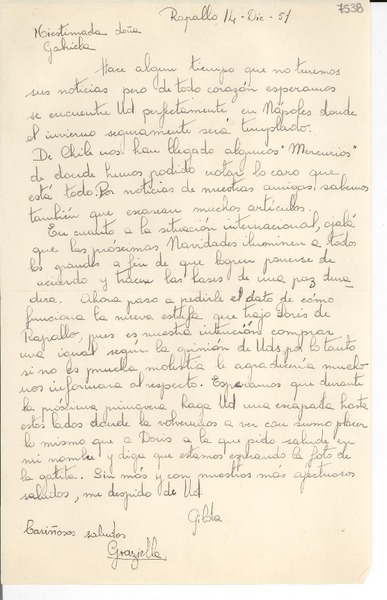 7538
Rapallo 14 - Dic - 51
Mi estimada doña
Gabriela
Hace algun tiempo que no tenemos
sus noticias pero de todo corazón esperamos
se encuentre Ud perfectamente en Nápoles donde
el invierno seguramente será templado.
De Chile nos han llegado algunos "Mercurios"
de donde hemos podido notar lo caro que
está todo. Por noticias de nuestras amigas sabemos
también que escasean muchos artículos.
En cuanto a la situación internacional, ojalá
que las próximas Navidades iluminen a todos
los grandes a fin de que logren ponerse de
acuerdo y trazar las bases de una paz dura
dera. Ahora paso a pedirle el dato de cómo
funciona la nueva estufa que trajo Doris de
Rapallo, pues es nuestra intención comprar
una igual según la opinión de Uds, por lo tanto
si no es mucha molestia le agradecería mucho
nos informara al respecto. Esperamos que durante
la próxima primavera haga Ud una escapada hasta
estos lados donde la volveremos a ver con sumo placer
lo mismo que a Doris a la que pido salude en
mi nombre y diga que estamos esperando la foto de
la gatita. Sin más y con nuestros más afectuosos
saludos, me despido de Ud
Gilda
Cariñosos saludos
Graziella